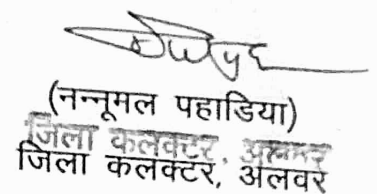 (नन्नूमल पहाडिया)
जिला कलक्टर, अलवर
जिला कलक्टर, अलवर